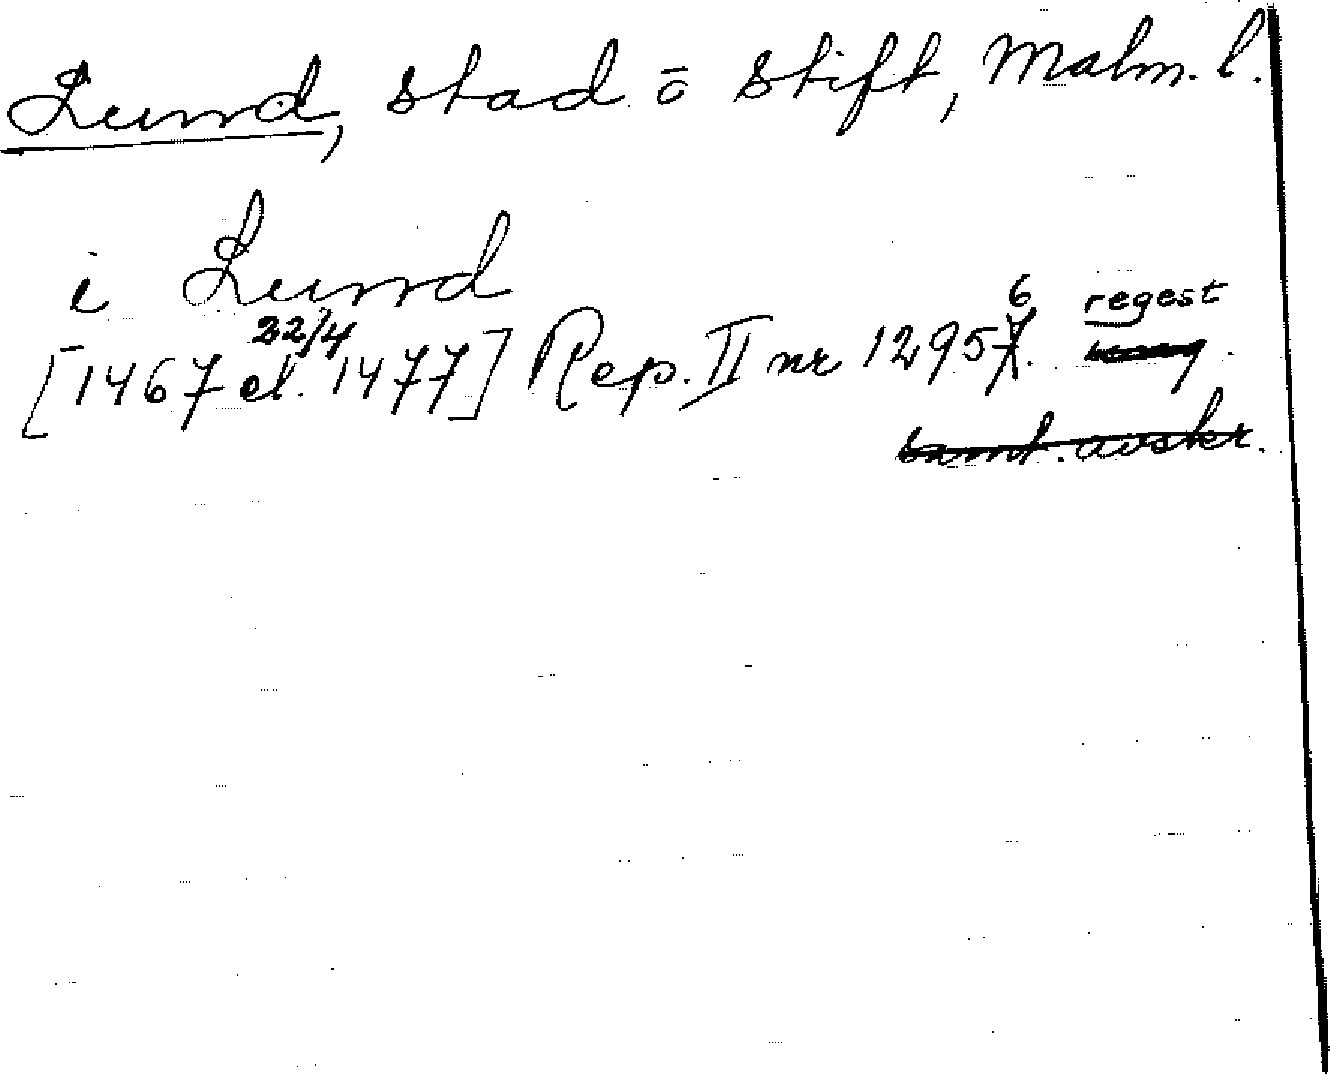 Lund, stad ō stift, Malm. l.
i Lund
22/4
[1467 el. 1477] Rep. II nr 12956. regest
samt. avskr.